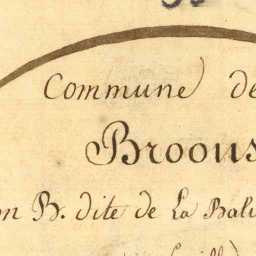 Commune de
Broons
on B. dite de La Bali